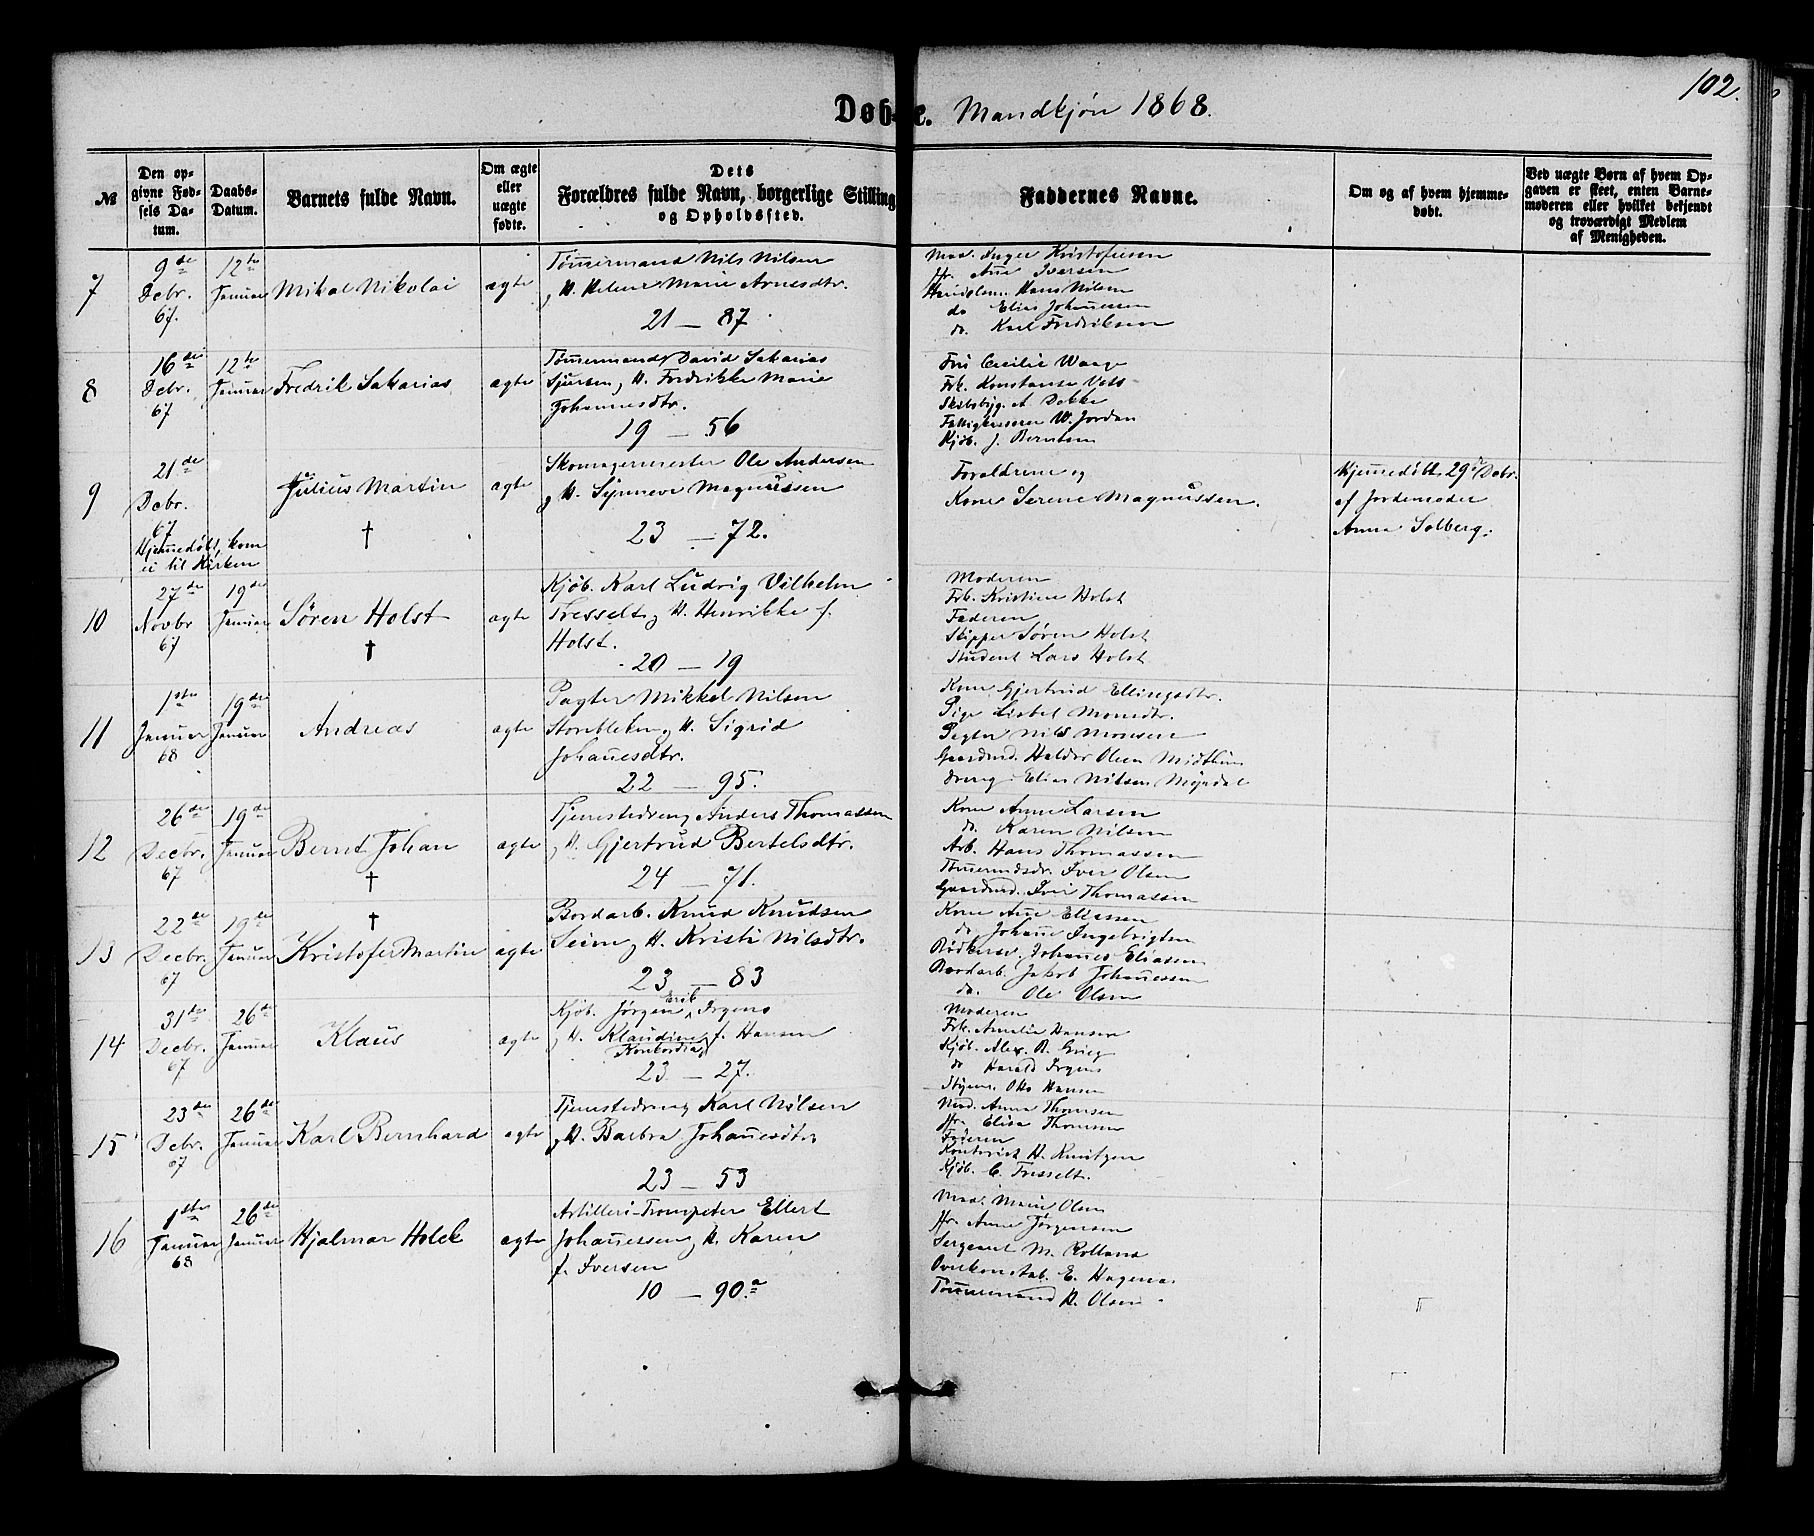 102.
Døbte. Mandkjøn 1868.
№
Den opgivne Fødsels Datum.
Daabs-Datum.
Barnets fulde Navn.
Om ægte eller uægte fødte.
Dets Forældres fulde Navn, borgerlige Stilling og Opholdssted.
Faddernes Navne.
Om og af hvem hjemmedøbt.
Ved uægte Børn af hvem Opgaven er skeet, enten Barnemoderen eller hvilket bekjendt og troværdigt Medlem af Menigheden.
7
9de Debr. 67.
12te Januar
Mikal Nikolai
ægte
Tømmermand Nils Nilsen
og H. Helene Marie Arnesdtr.
21 — 87.
Mad. Inger Kristofersen
Jfr. Ane Iversen
Hans Nilsen
do Elias Johannessen
do. Karl Fredriksen
8
16de Debr. 67
12te Januar
Fredrik Sakarias
ægte
Tømmermand David Sakarias
Sjursen og H. Fredrikke Marie
Johannesdtr.
19 — 56
Fru Cecilie Waage
Frk. Konstanse Vets
Skibsbyg. A Dekke
W. Jordan
Kjøb. J. Berntsen
9
21de Debr. 67
Hjemmedøbt, kom
ei til Kirken
Julius Martin
†
ægte
Skomagermester Ole Andersen
og H. Synneve Magnussen
23 — 72.
Forældrene og
Kone Serene Magnussen.
Hjemmedøbt 29de Debr.
af Jordemoder
Anna Solberg.
10
27de Novbr 67
19de Januar
Søren Holst
†
ægte
Kjøb. Karl Ludvig Vilhelm
Tresselt og H. Henrikke f.
Holst.
20 — 19
Moderen
Frk. Kristine Holst
Faderen
Skipper Søren Holst
Student Lars Holst
11
1ste Januar 68
19de Januar
Andreas
ægte
Pagter Mikkel Nilsen
Storebleken og H. Sigrid
Johannesdtr.
22 — 95.
Kone Gjertrud Ellingsdtr.
Pige Lisbet Monsdtr.
Pagter Nils Monsen
Gaardmd. Haldor Olsen Midthun
Dreng Elias Nilsen Myrdal
12
26de Decbr. 67
19de Januar
Bernt Johan
†
ægte
Tjenestedreng Anders Thomassen
og H. Gjertrud Bertelsdtr.
24 — 71.
Kone Anne Larsen
do. Karen Nilsen
Arb. Hans Thomassen
Tømermdsdr. Iver Olsen
Gaardmd. Iver Thomassen
13
22de Decbr. 67
19de Januar
†
Kristofer Martin
ægte
Bordarb. Knud Knudsen
Seim og H. Kristi Nilsdtr.
23 — 83
Kone Ane Eliassen
do. Johanne Ingebrigtsen
Bødkersv. Johannes Eliassen
Bordarb. Jakob Johannessen
do. Ole Olsen
14
31te Decbr. 67
26de Januar
Klaus
ægte
Kjøb. Jørgen Erik Irgens
og H. Klaudine Konkordia f. Hansen
23 — 27.
Moderen
Frk. Amalia Hansen
Kjøb. Alex. B. Grieg
do Harald Irgens
Styrm. Otto Hansen
15
23de Debr. 67
26de Januar
Karl Bernhard
ægte
Tjenestedreng Karl Nilsen
og H. Barbra Johannesdtr.
23 — 53
Mad. Anna Thomsen
Jfr. Elisa Thomsen
Faderen
Kontorist H. Knutzen
Kjøb. C. Tresselt.
16
1ste Januar 68
26de Januar
Hjalmar Holck
ægte
Artilleri-Trompeter Ellert
Johannessen og H. Karen
f. Iversen
10 — 90.a
Mad. Marie Olsen
Jfr. Anne Jørgensen
Sergeant M. Rolland
Overkonstab. E. Hagenas
Tømmermand H. Olsen